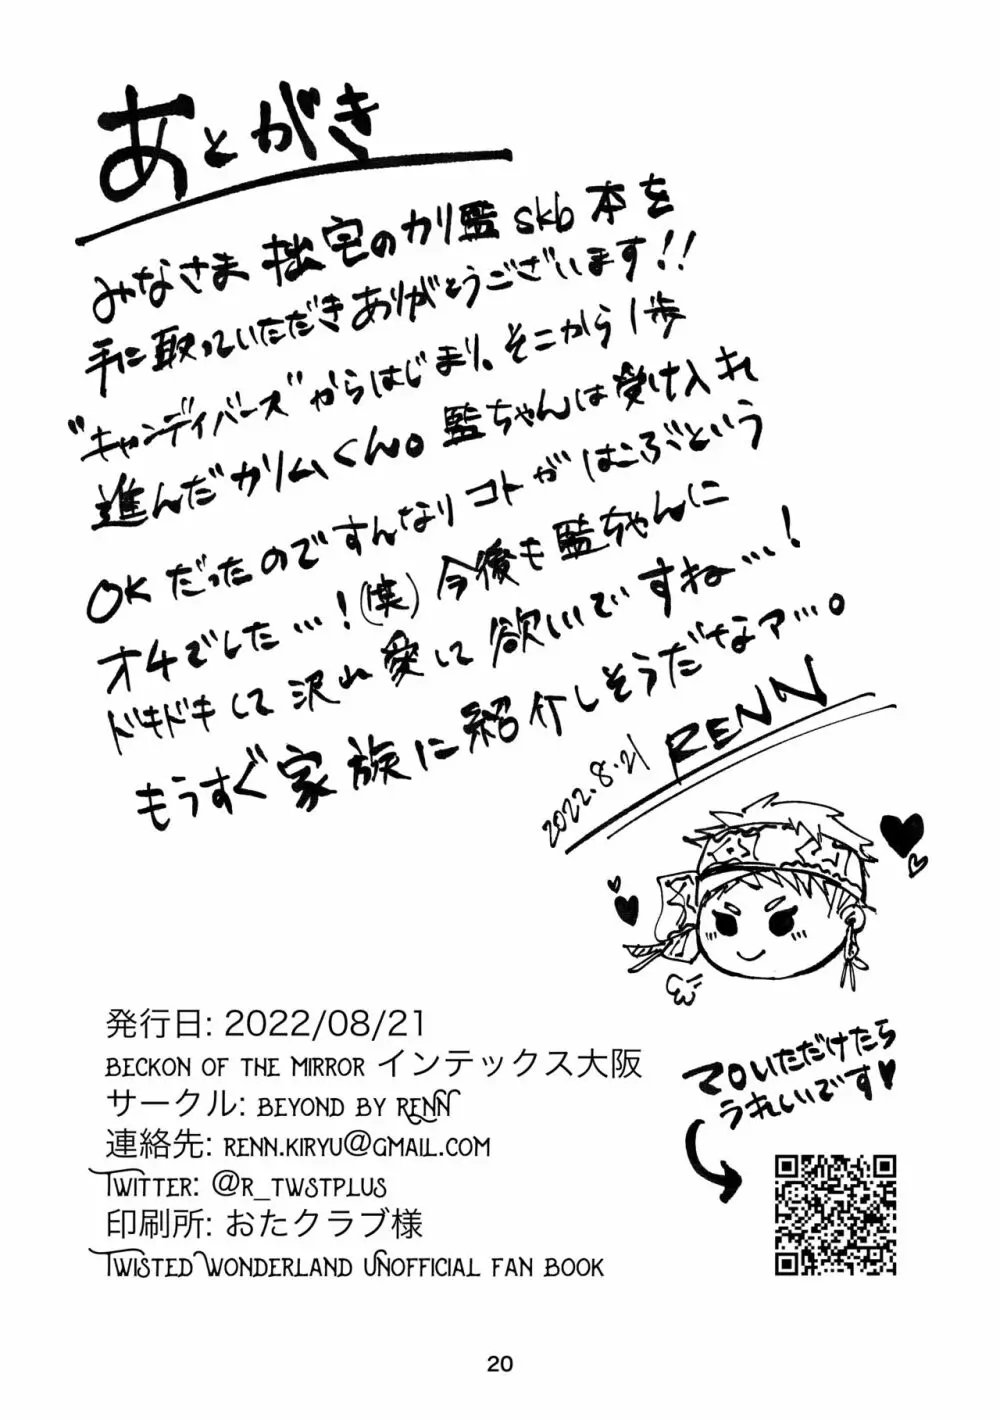 あとがき
みなさま 拙宅のカリ監skb本を
手に取っていただきありがとうございます!!
"キャンディバース"からはじまり。そこから1歩
進んだカリムくん。監ちゃんは受け入れ
OKだったのですんなりコトがはこぶという
オチでした…!(笑)今後も監ちゃんに
ドキドキして沢山愛して欲しいですね…!
もうすぐ家族に紹介しそうだなァ…。
2022.8.21 RENN
発行日: 2022/08/21
BECKON OF THE MIRROR インテックス大阪
サークル: BEYOND BY RENN
連絡先: RENN.KIRYU@GMAIL.COM
TWITTER: @R_TWSTPLUS
印刷所: おたクラブ様
TWISTED WONDERLAND UNOFFICIAL FAN BOOK
マロいただけたら
うれしいです♥
20